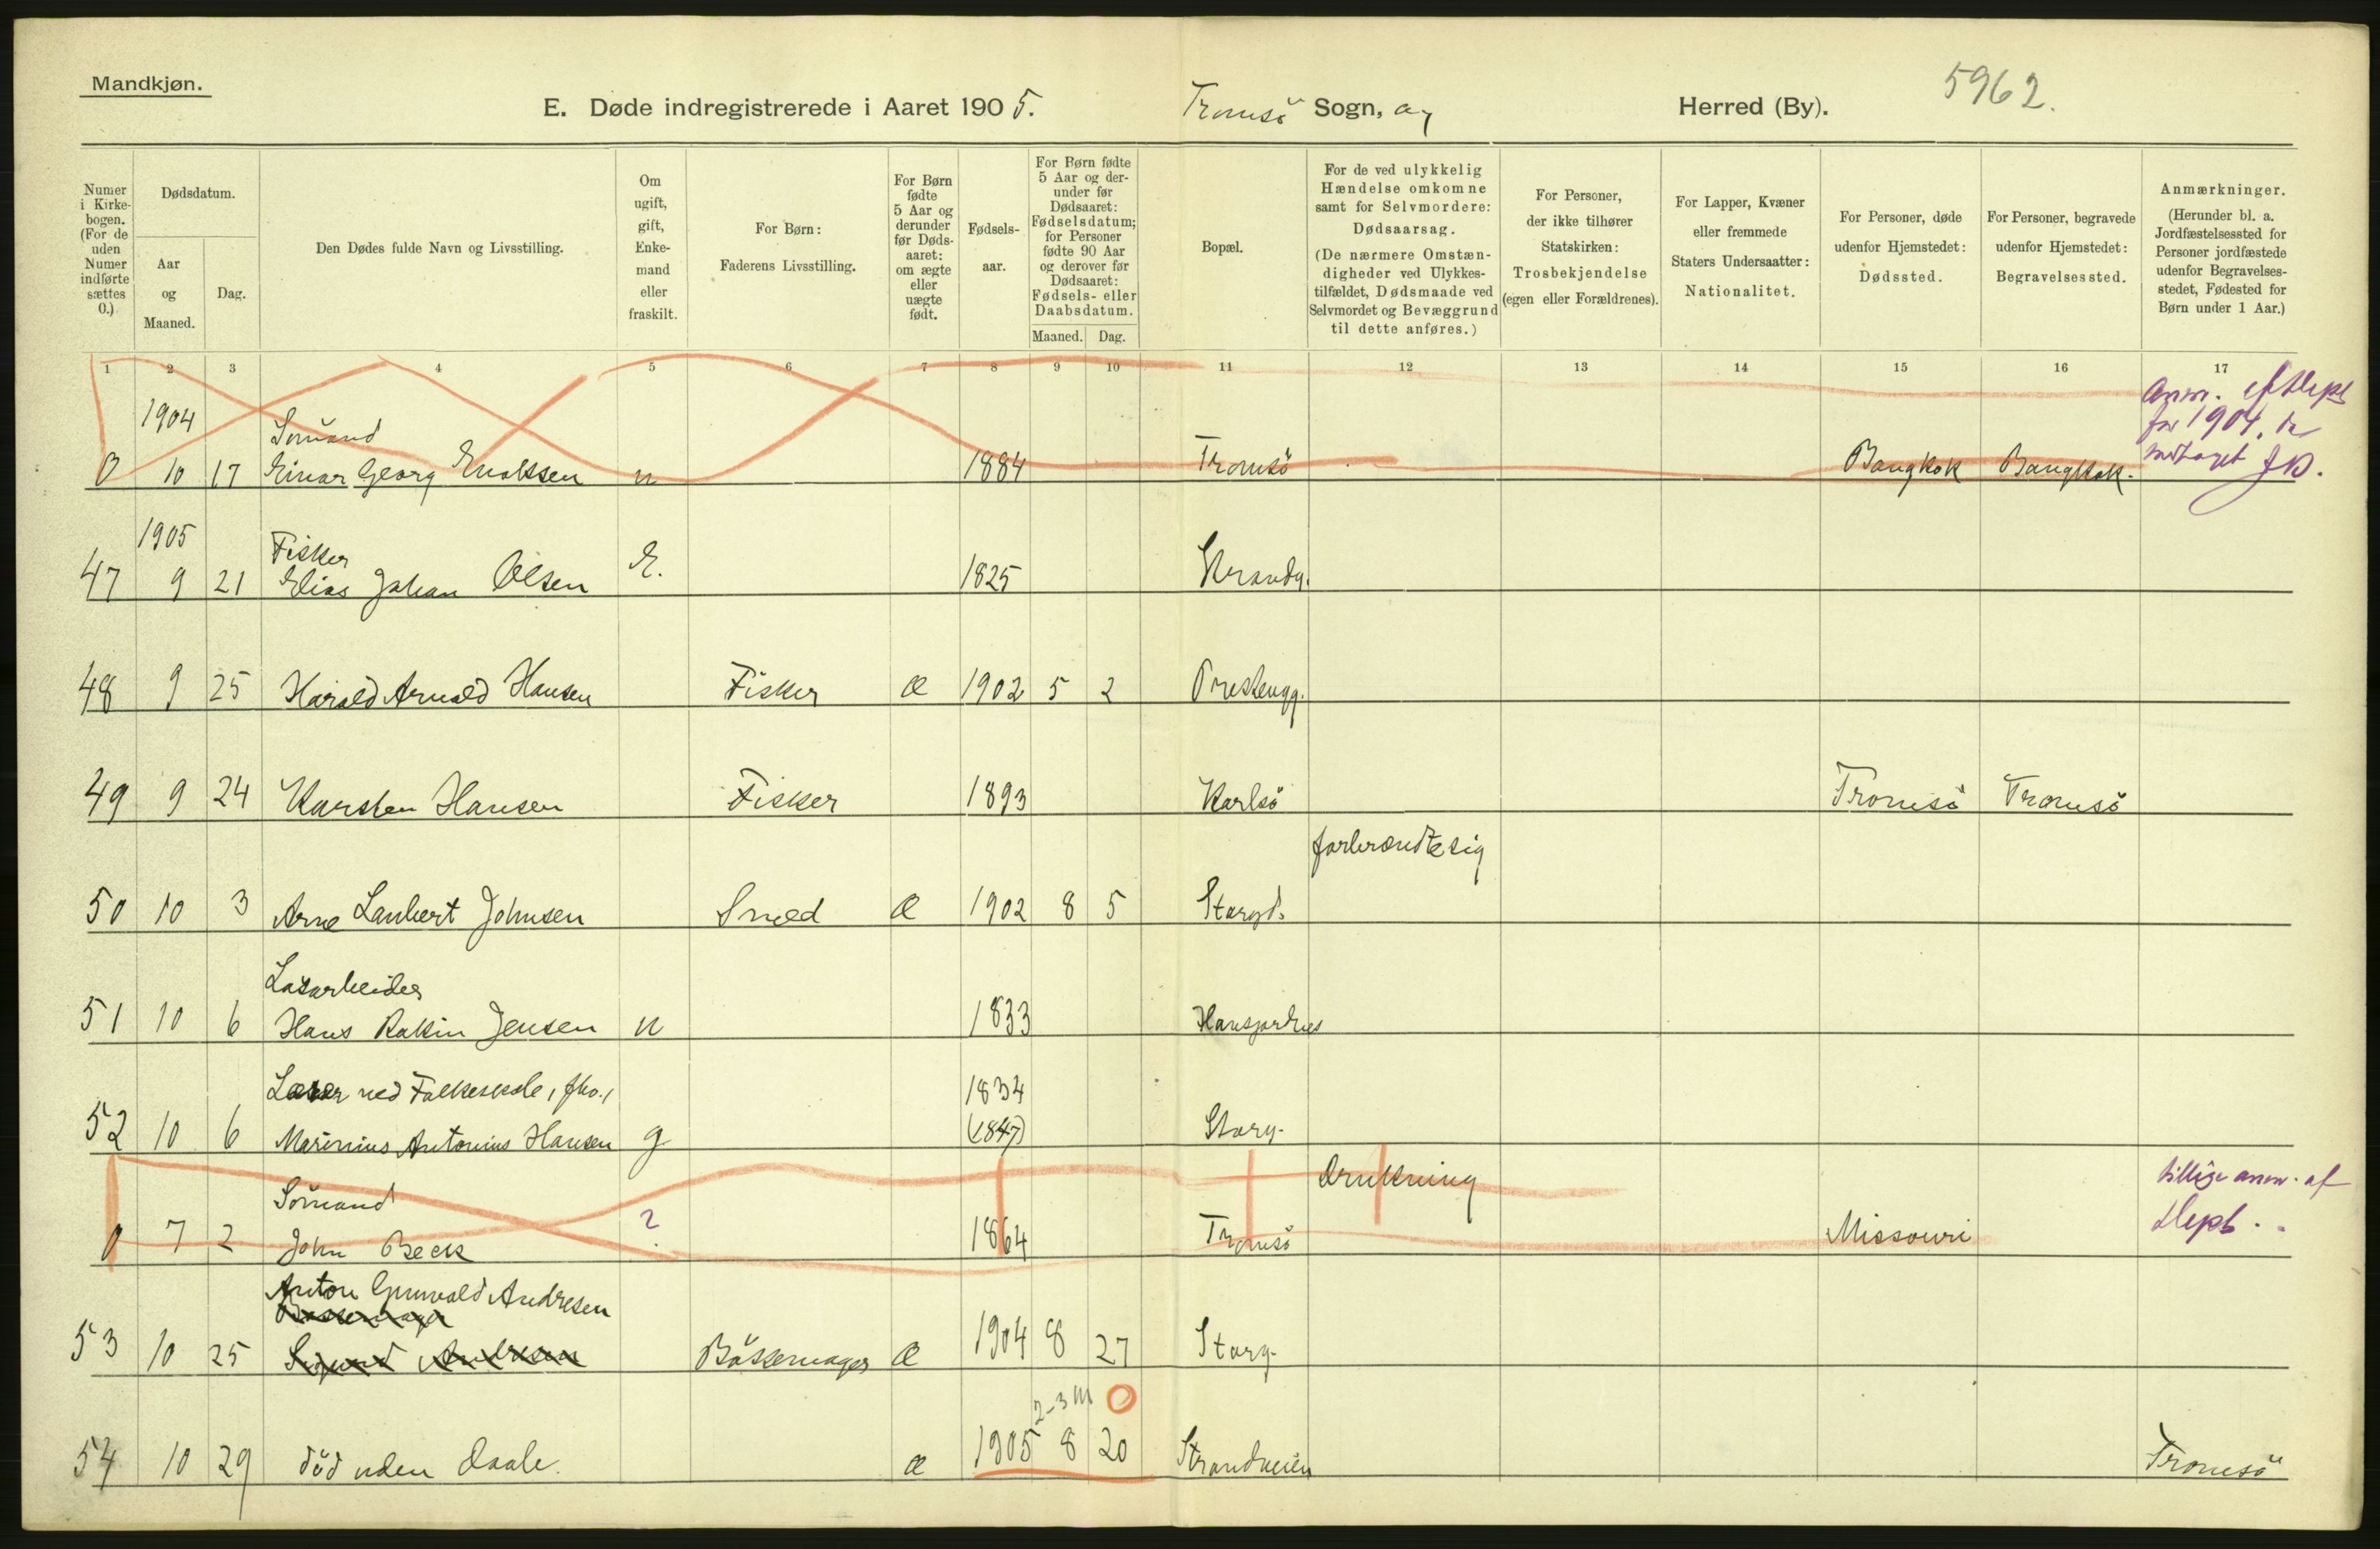 Mandkjøn.
E. Døde indregistrerede i Aaret 1905. Tromsö Sogn, og Herred (By). 5962.
Numer i Kirkebogen. (For de uden Numer indførte sættes 0.)
Dødsdatum.
Aar og Maaned.
Dag.
Den Dødes fulde Navn og Livsstilling.
Om ugift, gift, Enkemand eller fraskilt.
For Børn: Faderens Livsstilling.
For Børn fødte 5 Aar og derunder før Dødsaaret: om ægte eller uægte født.
Fødselsaar.
For Børn fødte 5 Aar og derunder før Dødsaaret: Fødselsdatum; for Personer fødte 90 Aar og derover før Dødsaaret: Fødsels- eller Daabsdatum.
Maaned. Dag.
Bopæl.
For de ved ulykkelig Hændelse omkomne samt for Selvmordere: Dødsaarsag.
(De nærmere Omstændigheder ved Ulykkestilfældet, Dødsmaade ved Selvmordet og Bevæggrund til dette anføres.)
For Personer, der ikke tilhører Statskirken: Trosbekjendelse (egen eller Forældrenes).
For Lapper, Kvæner eller fremmede Staters Undersaatter: Nationalitet.
For Personer, døde udenfor Hjemstedet: Dødssted.
For Personer, begravede udenfor Hjemstedet: Begravelsessted.
Anmærkninger.
(Herunder bl. a. Jordfæstelsessted for Personer jordfæstede udenfor Begravelsesstedet, Fødested for Børn under 1 Aar.)
1 2 3 4 5 6 7 8 9 10 11 12 13 14 15 16 17
1904 Sömand
0 10 17 Einar Georg Enoksen u 1884 Tromsö Bangkok Bangkok.
for 1904
1905 Fisker
47 9 21 Elias Johan Olsen E. 1825 Strandg.
48 9 25 Harald Arnold Hansen Fisker Æ 1902 5 2 Prestengg.
49 9 24 Karsten Hansen Fisker 1893 Karlsö Tromsö Tromsö
forbrændte sig
50 10 3 Arne Lambert Johnsen Smed Æ 1902 8 5 Storgd.
Løsarbeider
51 10 6 Hans Rakin Jensen u 1833 Hansjordnes
Lærer ved Folkeskole, fho., 1834
52 10 6 Marinius Antonius Hansen g (1847) Storg.
Sömand drukning tillige anm. af
0 7 2 John Beck ? 1864 Tromsö Missouri Slept.
Anton Gunvald Andresen
53 10 25 Sigurd Andresen Bössemager Æ 1904 8 27 Storg.
2-3 M
54 10 29 död uden daab. Æ 1905 8 20 Strandveien Tromsö